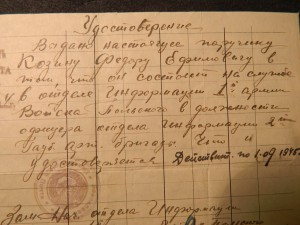 Удостоверение
Выдано настоящее поручику
Козину Федору Ефимовичу в
том что он состоит на службе
в отделе Информации 1й армии
Войска Польского в должности
офицера отдела Информации 2й
Гауб. Арт. бригады что и
удостоверяется
Действит. по 1.09 1945.
Зам. Нач отдела Информации